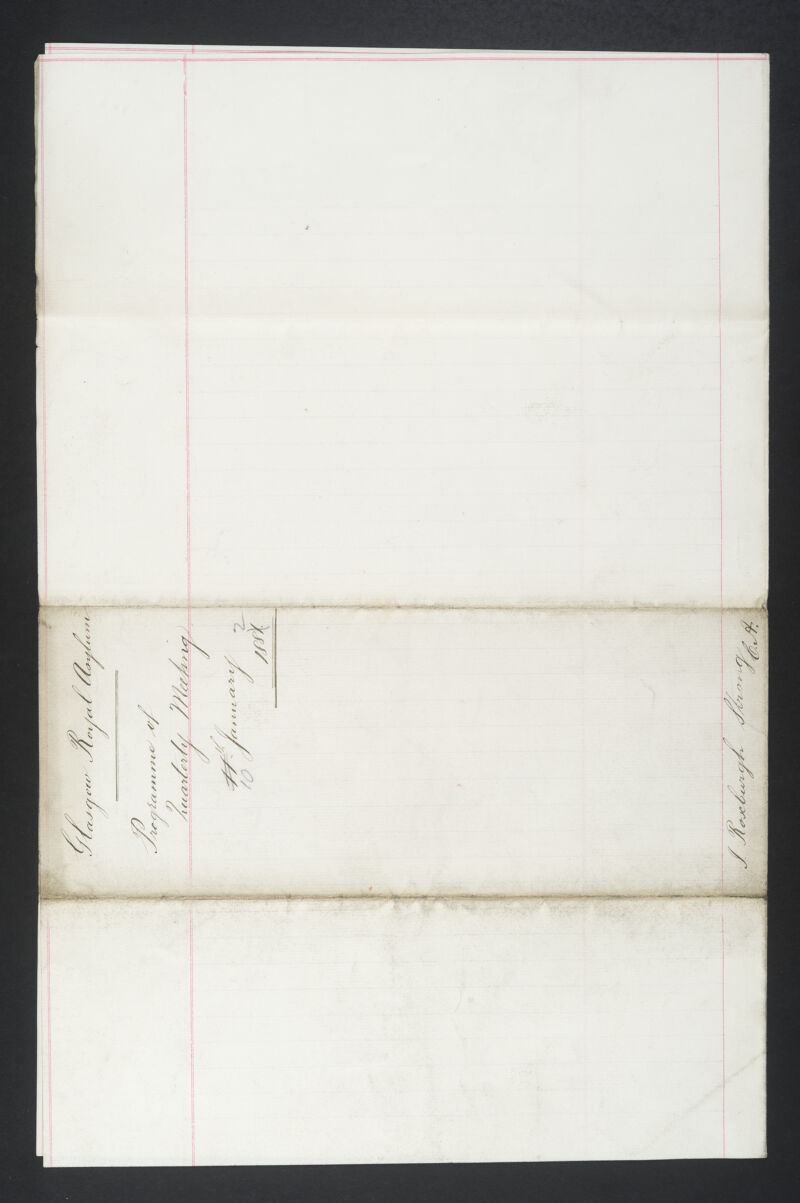 Glasgow Royal Asylum
Programme of
Quarterly Meeting
11th January 1881
10 2
J Roxburgh Strong
C.A.